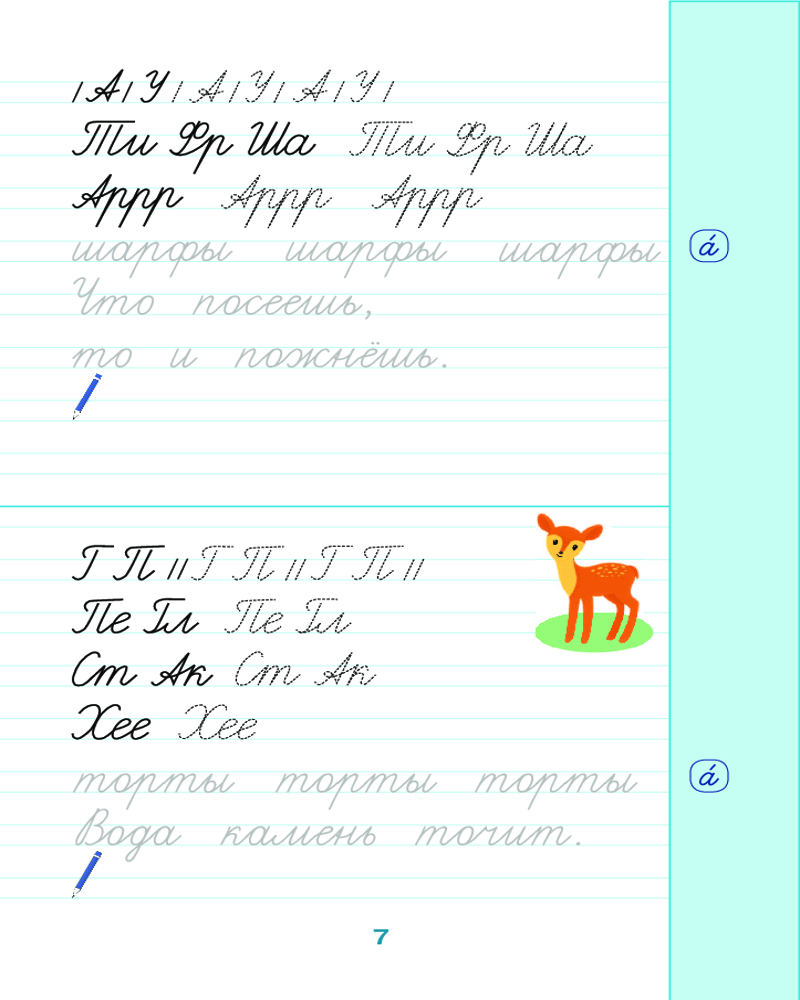 / А / У / А / У / А / У /
Ти Фр Ша Ти Фр Ша
Аррр Аррр Аррр
шарфы шарфы шарфы
á
Что посеешь,
то и пожнёшь.
Г П // Г П // Г П //
Пе Гл Пе Гл
Ст Ак Ст Ак
Хее Хее
торты торты торты
á
Вода камень точит.
7